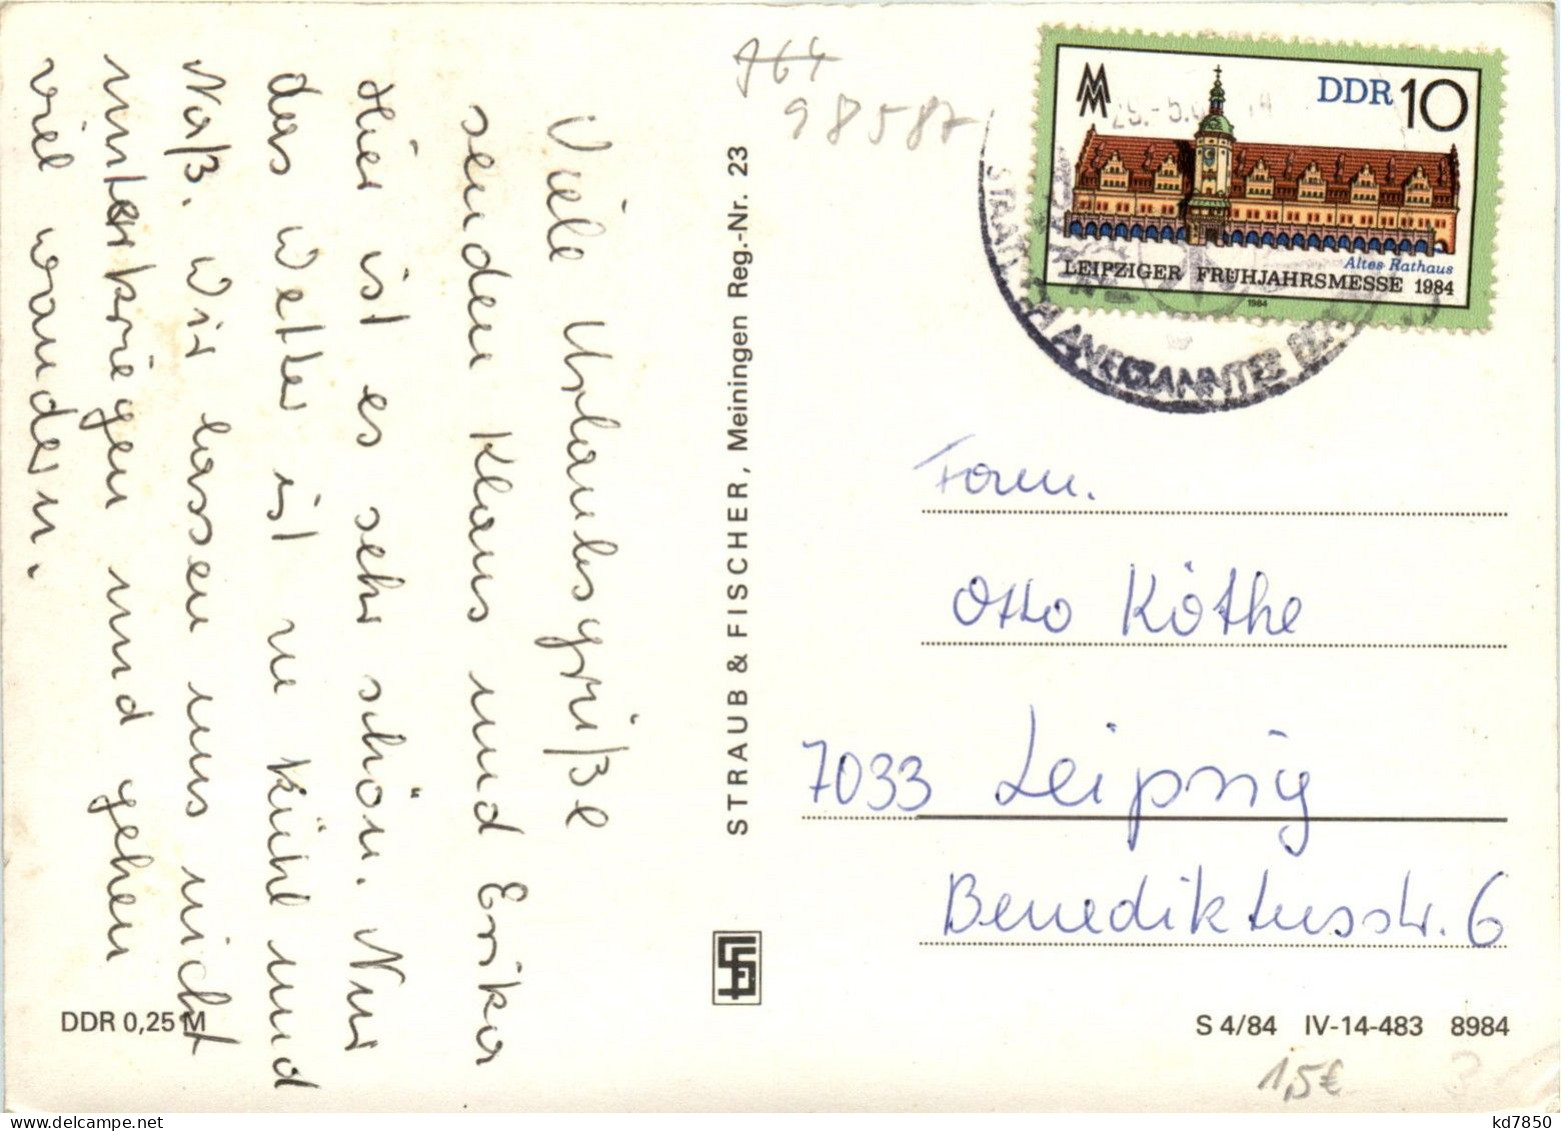 Viele Urlaubsgrüße
senden Klaus und Erika
Hier ist es sehr schön. Nur
das Wetter ist zu kühl und
Naß. Wir lassen uns nicht
unterkriegen und gehen
viel wandern.
DDR 0,25 M
STRAUB & FISCHER, Meiningen Reg.-Nr. 23
964
98587
DDR 10
Altes Rathaus
LEIPZIGER FRÜHJAHRSMESSE 1984
1984
STAATLICH ANERKANNTER
Fam.
Otto Köthe
7033 Leipzig
Benediktusstr. 6
S 4/84 IV-14-483 8984
1,5€
kd7850